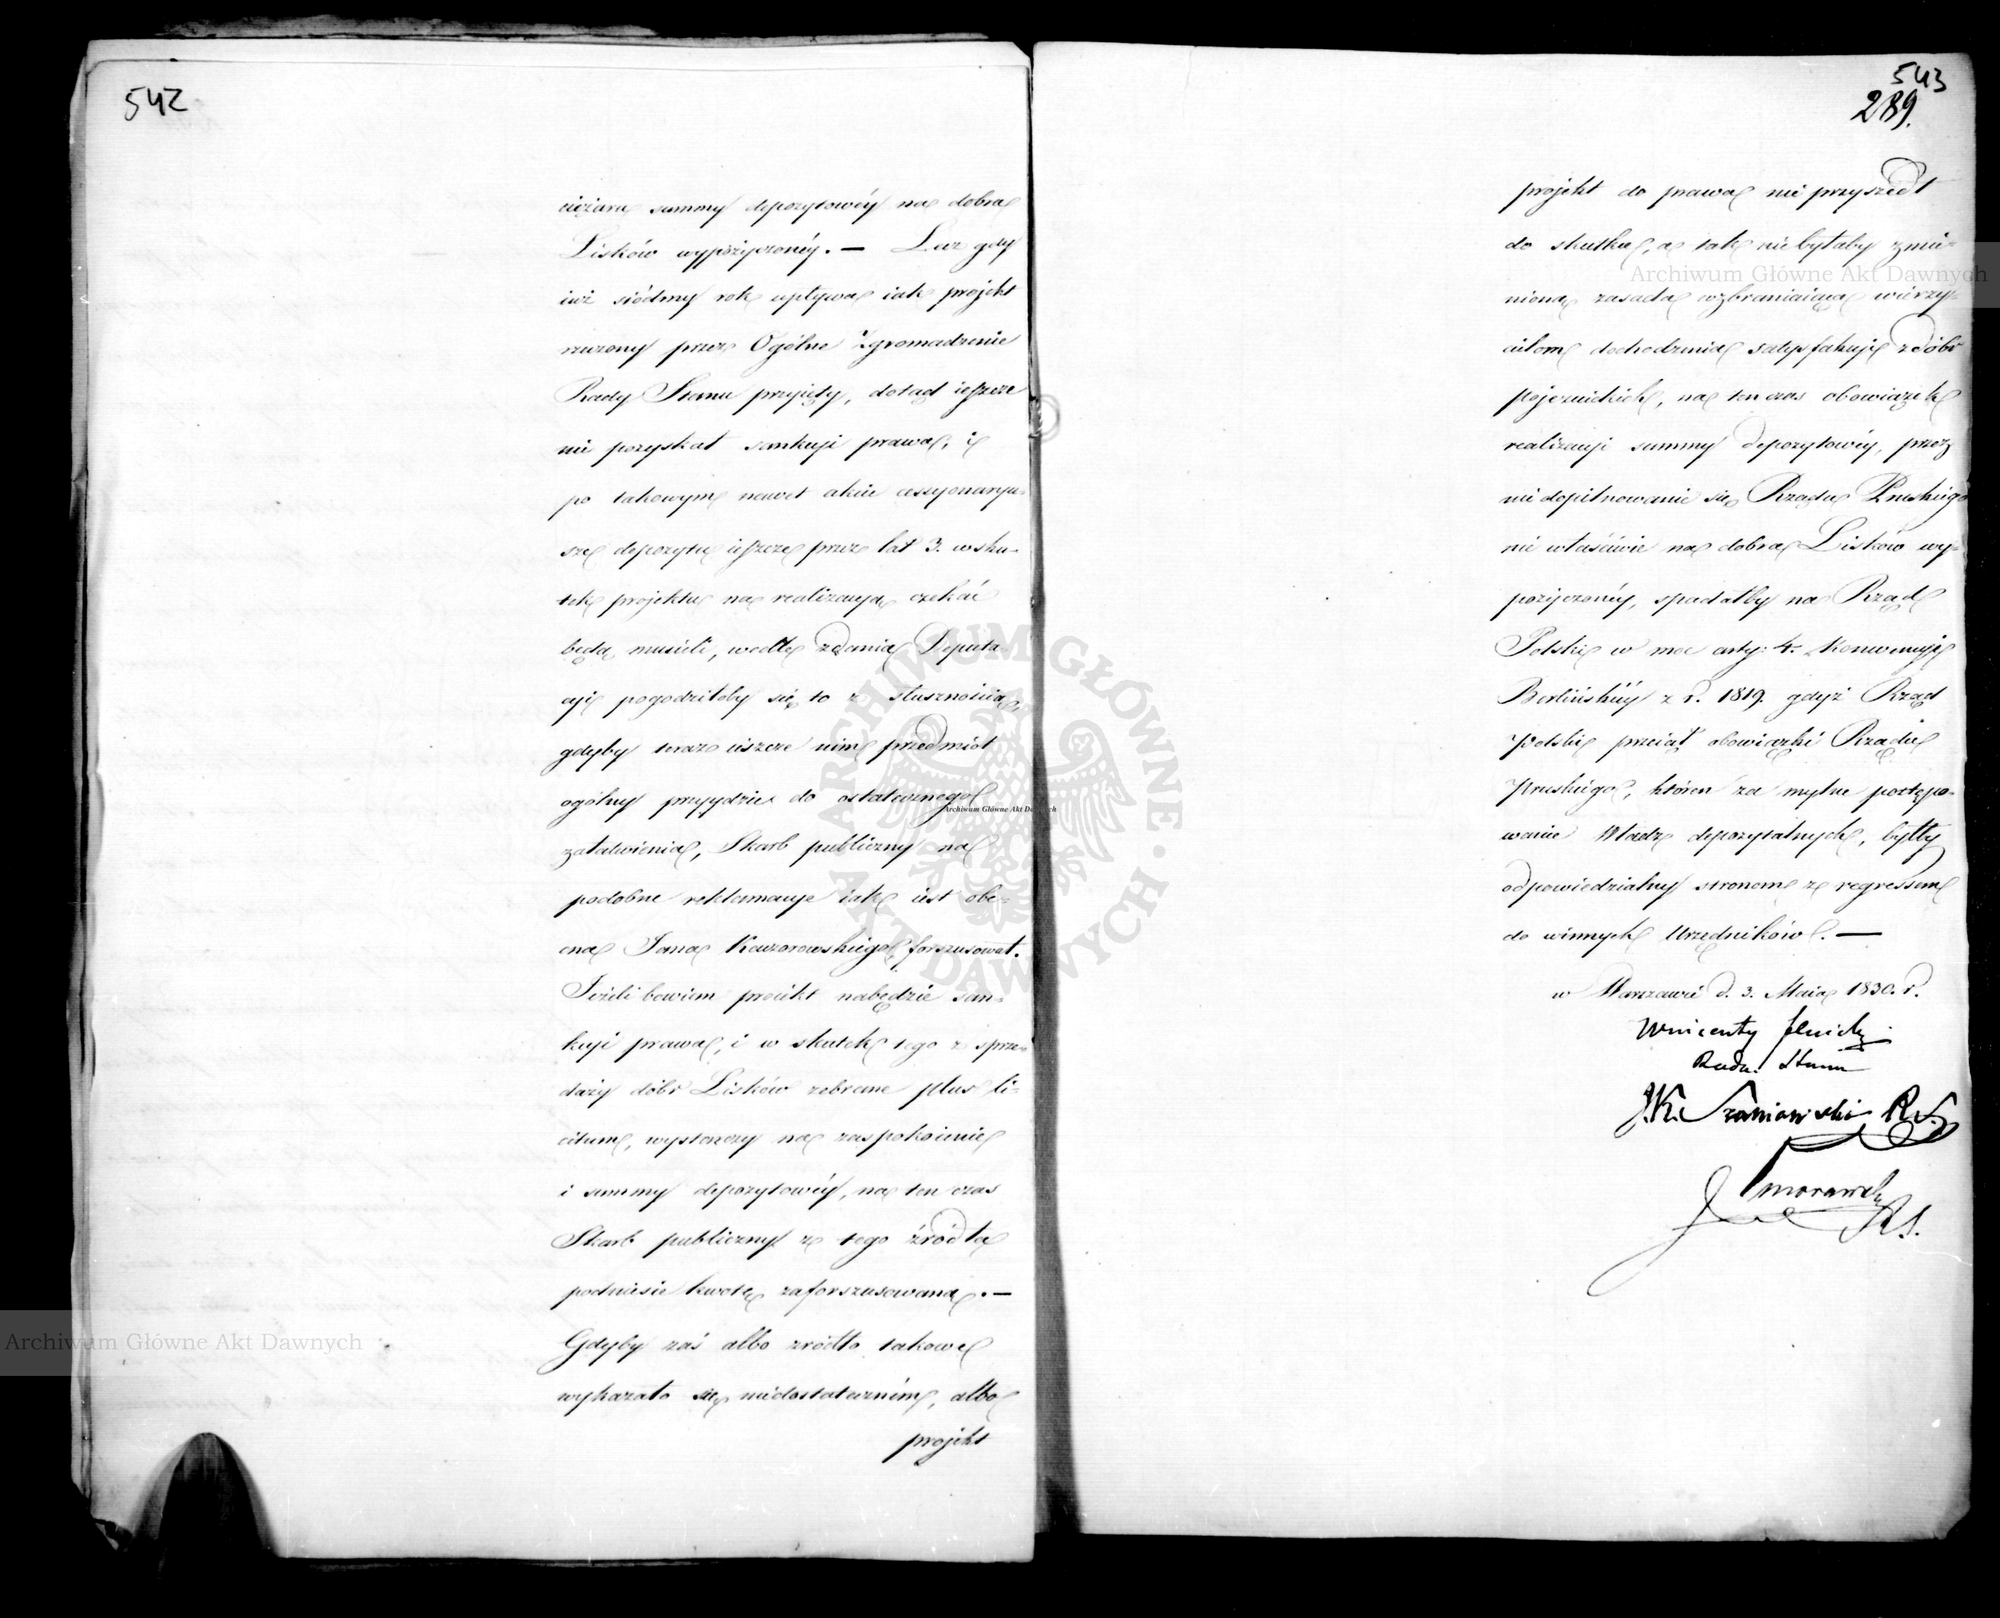 542
ciężaru summy depozytowéy na dobra
Lisków wypożyczonéy. — Lecz gdy
iuż siódmy rok upływa iak projekt
rzeczony przez Ogólne Zgromadzenie
Rady Stanu przyięty, dotąd ieszcze
nie pozyskał sankcyi prawa, i
po takowym nawet akcie cessyonaryu-
sze depozytu ieszcze przez lat 3. w sku-
tek projektu na realizacyą czekać
będą musieli, wedle zdania Deputa-
cyi pogodziłoby się to z słusznością,
gdyby teraz ieszcze nim przedmiot
ogólny przyydzie do ostatecznego
załatwienia, Skarb publiczny na
podobne reklamacye iak iest obe-
cna Jana Kaczorowskiego, forszusował.
Jeżeli bowiem proiekt nabędzie san-
kcyi prawa, i w skutek tego z sprze-
daży dóbr Lisków zebrane plus li-
citum, wystarczy na zaspokoienie
i summy depozytowéy, na ten czas
Skarb publiczny z tego źródła
podniesie kwotę zaforszusowaną. —
Gdyby zaś albo źródło takowe
wykazało się niedostatecznem, albo
projekt
543
289.
projekt do prawa nie przyszedł
do skutku, a tak niebyłaby zmie-
niona zasada wzbraniaiąca wierzy-
cielom dochodzenia satysfakcyi z dóbr
pojezuickich, na ten czas obowiązek
realizacyi summy depozytowéy, przez
niedopilnowanie się Rządu Pruskiego
nie właściwie na dobra Lisków wy-
pożyczonéy, spadałby na Rząd
Polski w moc arty: 4. Konwencyi
Berlińskiéy z r. 1819. gdyż Rząd
Polski przeiął obowiązki Rządu
Pruskiego, któren za mylne postępo-
wanie Władz depozytalnych, byłby
odpowiedzialny stronom z regressem
do winnych Urzędników. —
w Warszawie d. 3. Maia 1830. r.
Wincenty
Radca Stanu
J.K. Szaniawski R.S.
Morawski
R.S.
Archiwum Główne Akt Dawnych
Archiwum Główne Akt Dawnych
Archiwum Główne Akt Dawnych
ARCHIWUM GŁÓWNE AKT DAWNYCH